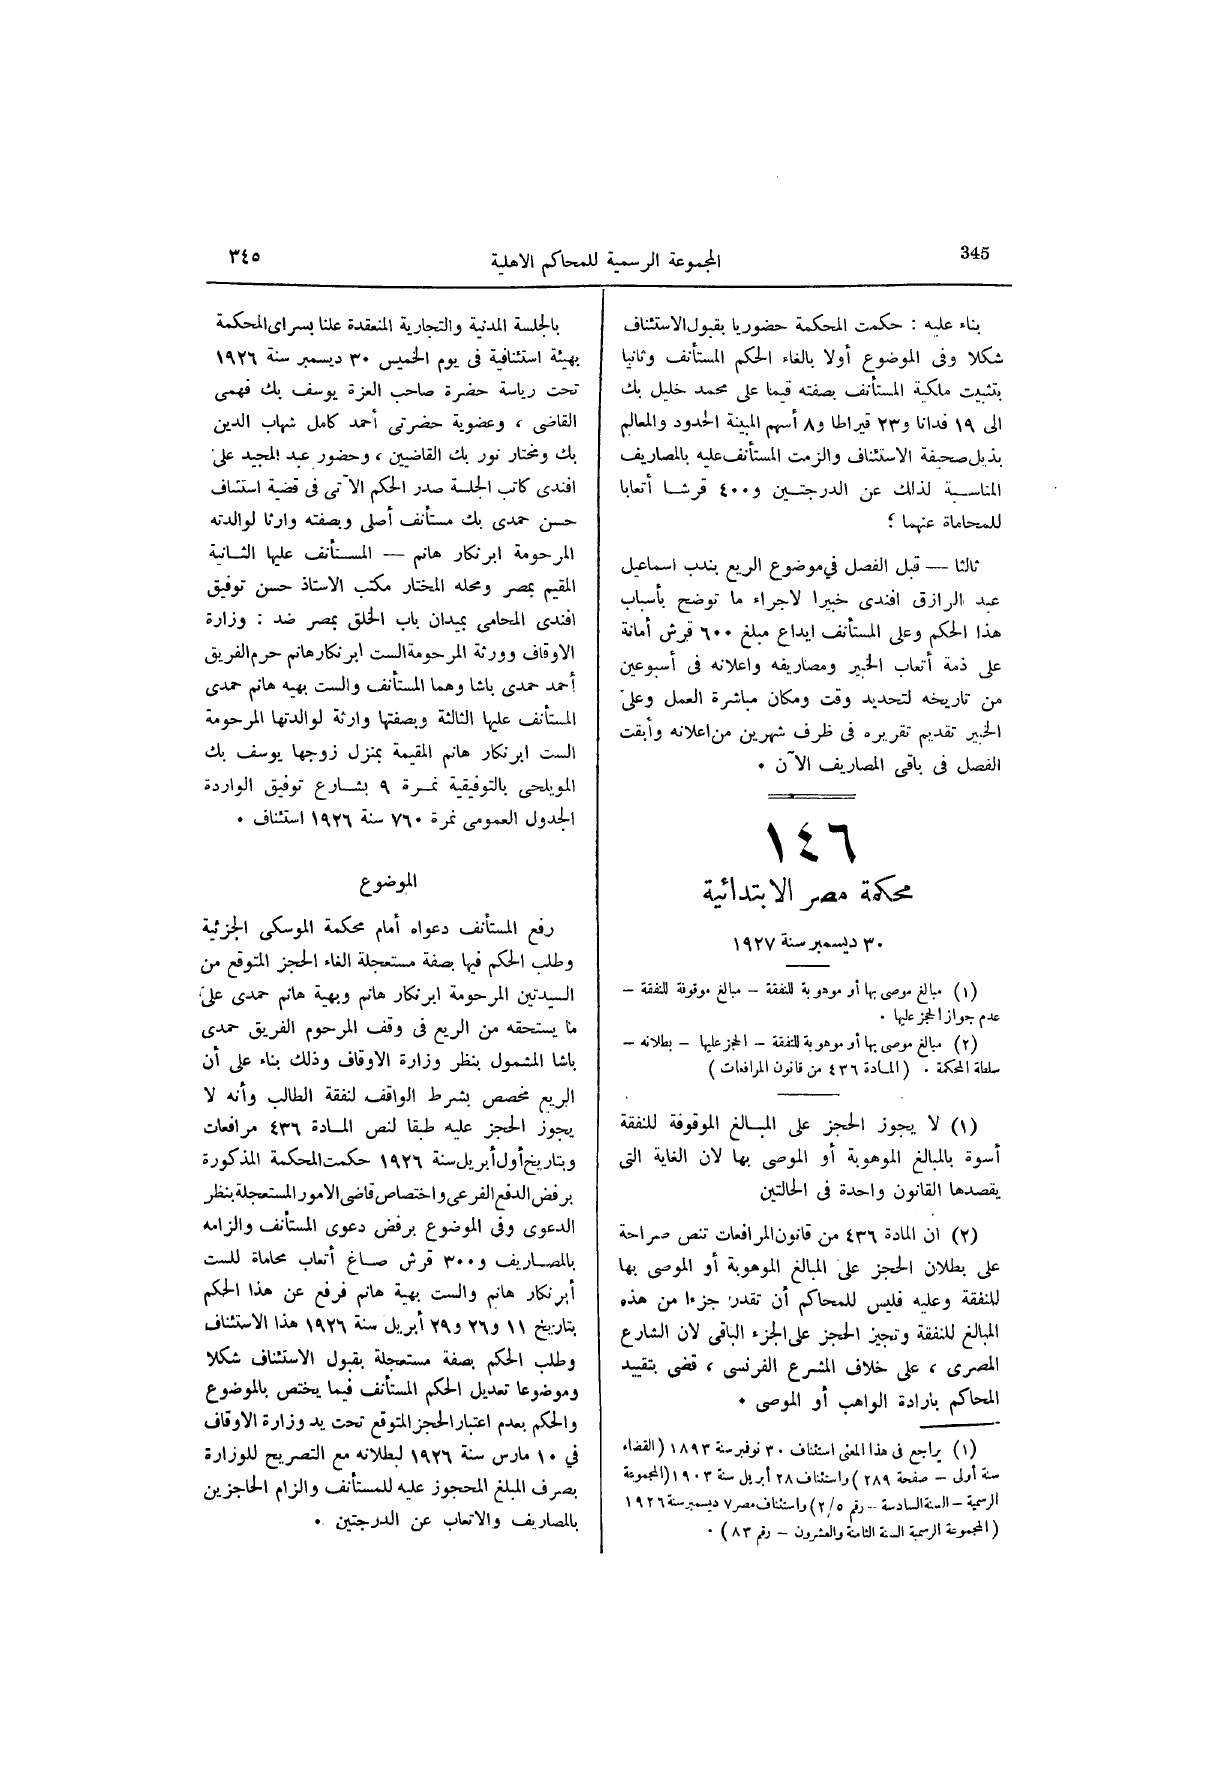 345
المجموعة الرسمية للمحاكم الاهلية
٣٤٥
بناء عليه : حكمت المحكمة حضوريا بقبول الاستئناف
شكلا وفى الموضوع أولا بالغاء الحكم المستأنف وثانيا
بتثبيت ملكية المستأنف بصفته قيما على محمد خليل بك
الى ١٩ فدانا و٢٣ قيراطا و٨ أسهم المبينة الحدود والمعالم
بذيل صحيفة الاستئناف والزمت المستأنف عليه بالمصاريف
المناسبة لذلك عن الدرجتين و٤٠٠ قرشا أتعابا
للمحاماة عنهما ؟
ثالثا — قبل الفصل في موضوع الريع بندب اسماعيل
عبد الرازق افندى خبيرا لاجراء ما توضح بأسباب
هذا الحكم وعلى المستأنف ايداع مبلغ ٦٠٠ قرش أمانة
على ذمة أتعاب الخبير ومصاريفه واعلانه فى أسبوعين
من تاريخه لتحديد وقت ومكان مباشرة العمل وعلى
الخبير تقديم تقريره فى ظرف شهرين من اعلانه وأبقت
الفصل فى باقى المصاريف الآن .
١٤٦
محكمة مصر الابتدائية
٣٠ ديسمبر سنة ١٩٢٧
(١) مبالغ موصى بها أو موهوبة للنفقة — مبالغ موقوفة للنفقة —
عدم جواز الحجز عليها .
(٢) مبالغ موصى بها أو موهوبة للنفقة — الحجز عليها — بطلانه —
سلطة المحكمة . (المادة ٤٣٦ من قانون المرافعات)
(١) لا يجوز الحجز على المبالغ الموقوفة للنفقة
أسوة بالمبالغ الموهوبة أو الموصى بها لان الغاية التى
يقصدها القانون واحدة فى الحالتين
(٢) ان المادة ٤٣٦ من قانون المرافعات تنص صراحة
على بطلان الحجز على المبالغ الموهوبة أو الموصى بها
للنفقة وعليه فليس للمحاكم أن تقدر جزءا من هذه
المبالغ للنفقة وتجيز الحجز على الجزء الباقى لان الشارع
المصرى ، على خلاف المشرع الفرنسى ، قضى بتقييد
المحاكم بارادة الواهب أو الموصى .
(١) يراجع فى هذا المعنى استئناف ٣٠ نوفمبر سنة ١٨٩٣ (القضاء
سنة أولى — صفحة ٢٨٩) واستئناف ٢٨ أبريل سنة ١٩٠٣ (المجموعة
الرسمية — السنة السادسة — رقم ٢/٥) واستئناف مصر ٧ ديسمبر سنة ١٩٢٦
(المجموعة الرسمية السنة الثامنة والعشرون — رقم ٨٣) .
بالجلسة المدنية والتجارية المنعقدة علنا بسراى المحكمة
بهيئة استئنافية فى يوم الخميس ٣٠ ديسمبر سنة ١٩٢٦
تحت رياسة حضرة صاحب العزة يوسف بك فهمى
القاضى ، وعضوية حضرتى أحمد كامل شهاب الدين
بك ومختار نور بك القاضيين ، وحضور عبد المجيد على
افندى كاتب الجلسة صدر الحكم الآتى فى قضية استئناف
حسن حمدى بك مستأنف أصلى وبصفته وارثا لوالدته
المرحومة ابرنكار هانم — المستأنف عليها الثانية
المقيم بمصر ومحله المختار مكتب الاستاذ حسن توفيق
افندى المحامى بميدان باب الخلق بمصر ضد : وزارة
الاوقاف وورثة المرحومة الست ابرنكار هانم حرم الفريق
أحمد حمدى باشا وهما المستأنف والست بهيه هانم حمدى
المستأنف عليها الثالثة وبصفتها وارثة لوالدتها المرحومة
الست ابرنكار هانم المقيمة بمنزل زوجها يوسف بك
المويلحى بالتوفيقية نمرة ٩ بشارع توفيق الواردة
الجدول العمومى نمرة ٧٦٠ سنة ١٩٢٦ استئناف .
الموضوع
رفع المستأنف دعواه أمام محكمة الموسكى الجزئية
وطلب الحكم فيها بصفة مستعجلة الغاء الحجز المتوقع من
السيدتين المرحومة ابرنكار هانم وبهية هانم حمدى على
ما يستحقه من الريع فى وقف المرحوم الفريق حمدى
باشا المشمول بنظر وزارة الاوقاف وذلك بناء على أن
الريع مخصص بشرط الواقف لنفقة الطالب وأنه لا
يجوز الحجز عليه طبقا لنص المادة ٤٣٦ مرافعات
وبتاريخ أول أبريل سنة ١٩٢٦ حكمت المحكمة المذكورة
برفض الدفع الفرعى واختصاص قاضى الامور المستعجلة بنظر
الدعوى وفى الموضوع برفض دعوى المستأنف والزامه
بالمصاريف و٣٠٠ قرش صاغ أتعاب محاماة للست
أبرنكار هانم والست بهية هانم فرفع عن هذا الحكم
بتاريخ ١١ و٢٦ و٢٩ أبريل سنة ١٩٢٦ هذا الاستئناف
وطلب الحكم بصفة مستعجلة بقبول الاستئناف شكلا
وموضوعا تعديل الحكم المستأنف فيما يختص بالموضوع
والحكم بعدم اعتبار الحجز المتوقع تحت يد وزارة الاوقاف
في ١٠ مارس سنة ١٩٢٦ لبطلانه مع التصريح للوزارة
بصرف المبلغ المحجوز عليه للمستأنف والزام الحاجزين
بالمصاريف والاتعاب عن الدرجتين .